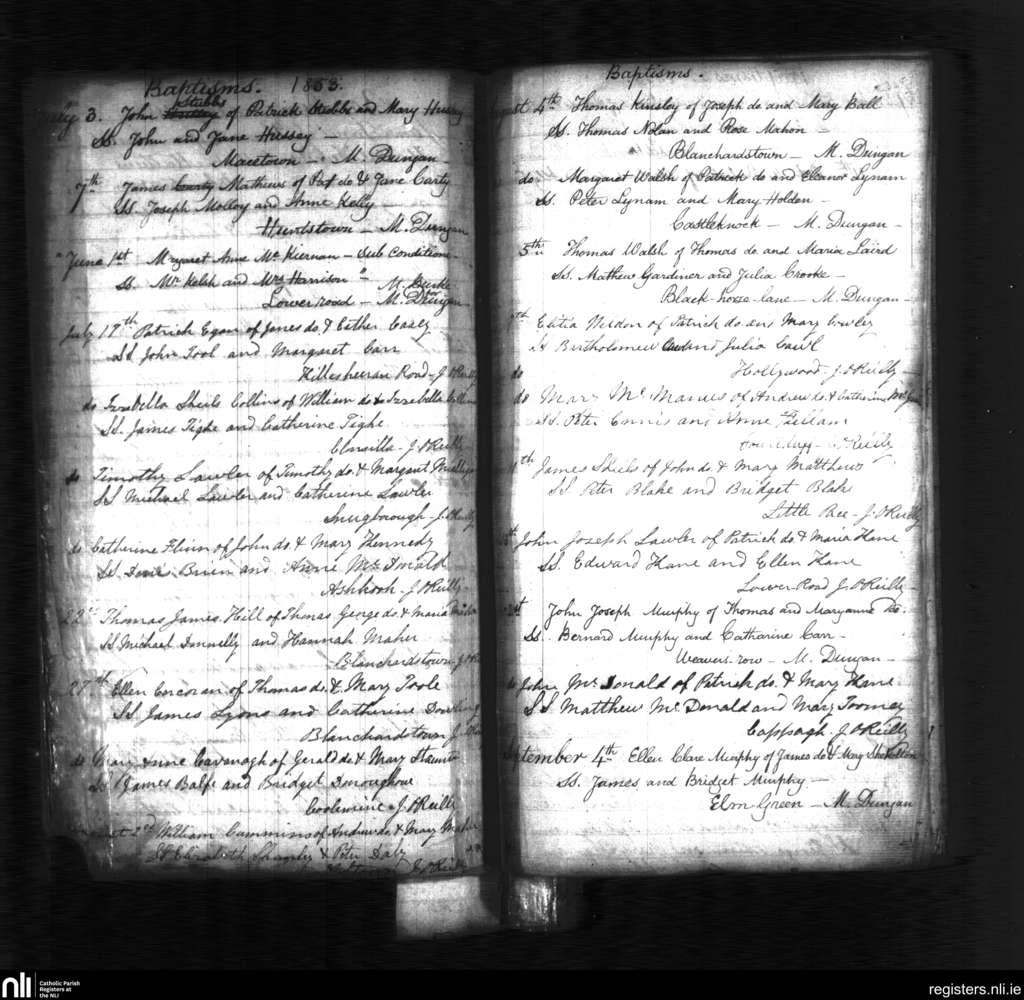 Baptisms. 1853.
July 3. John Stubbs of Patrick Stubbs and Mary Hussey
Ss. John and Jane Hussey -
Macetown - M. Dungan
7th James Carty Mathews of Pat do & Jane Carty
Ss. Joseph Molloy and Anne Kelly -
Huntstown - M. Dungan
" June 1st Margaret Anne Mc Kiernan - Sub Conditione
Ss. Mr Kelsh and Mrs Harrison " M. Burke
Lower road - M. Dungan
July 17th Patrick Egan of James do. & Esther Casey
SS John Tool and Margaret Carr
Road - J. O'Reilly
do Izabella Sheils Collins of William do & Izabella Collins
SS. James Tighe and Catherine Tighe
Clonsilla - J. O'Reilly
do Timothy Lawler of Timothy do. & Margaret
SS Michael Lawler and Catherine Lawler
Snugborough - J. O'Reilly
do Catherine Flinn of John do. & Mary Kennedy
SS Brien and Anne Mc Donald
Ashtook - J. O'Reilly
22nd Thomas James Hill of Thomas George do. & Maria
SS Michael Donnelly and Hannah Maher
Blanchardstown - J. O'R
27th Ellen Corcoran of Thomas do. & Mary Toole
SS James Lyons and Catherine Dowling
Blanchardstown J.
do Mary Anne Cavanagh of Gerald do & Mary Staunton
SS James Balfe and Bridget Donoughoue
Coolmine J. O'Reilly
August 2nd William Cummins of Andrew do. & Mary Maher
SS Elizabeth & Peter Daly
J. O'Reilly
Baptisms.
August 4th Thomas Kinsley of Joseph do and Mary Ball
Ss. Thomas Nolan and Rose Mahon -
Blanchardstown - M. Dungan
do - Margaret Walsh of Patrick do and Eleanor Lynam
Ss. Peter Lynam and Mary Holden -
Castleknock - M. Dungan -
5th Thomas Walsh of Thomas do and Maria Laird
Ss. Mathew Gardiner and Julia Crooke -
Black-horse lane - M. Dungan -
of Patrick do. and Mary Cowley
SS Bartholomew and Julia
do Hollywood - J. O'Reilly
do Mary Mc Manus of Andrew do. & Catherine
SS. Peter Ennis and Anne
O'Reilly
th James Sheils of John do. & Mary Matthews
SS Peter Blake and Bridget Blake
Little Pace - J. O'Reilly
John Joseph Lawler of Patrick do & Maria Kane
SS. Edward Kane and Ellen Kane
Lower Road J. O'Reilly -
John Joseph Murphy of Thomas and Maryanne do.
Ss. Bernard Murphy and Catharine Carr -
Weavers-row - M. Dungan -
do John Mc Donald of Patrick do. & Mary Kane
SS Matthew Mc Donald and Mary Toomey
Cappagh, J. O'Reilly
September 4th Ellen Clare Murphy of James do & Mary Shakelton
Ss. James and Bridget Murphy -
Elm Green - M. Dungan
nli
Catholic Parish
Registers at
the NLI
registers.nli.ie